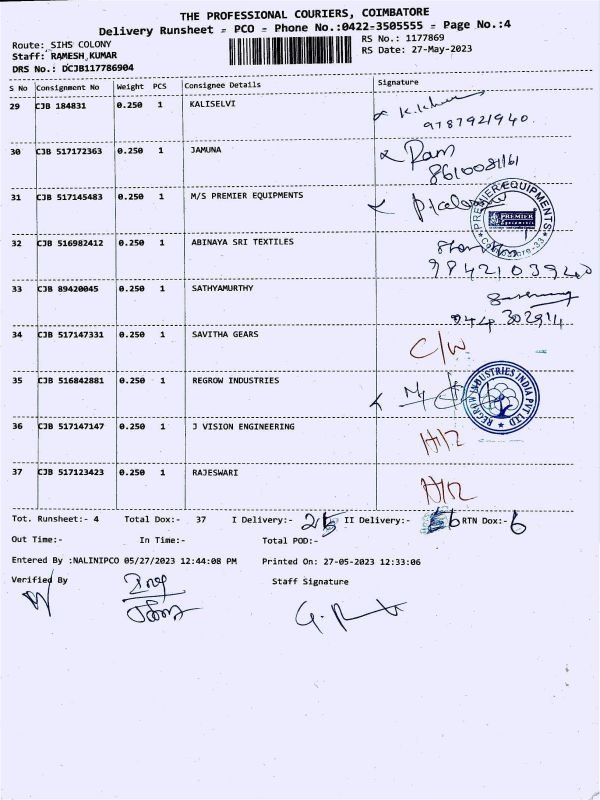 THE PROFESSIONAL COURIERS, COIMBATORE
Delivery Runsheet - PCO - Phone No.:0422-3505555 - Page No.:4
Route: SIHS COLONY RS No.: 1177869
Staff: RAMESH,KUMAR RS Date: 27-May-2023
DRS No.: DCJB117786904
S No Consignment No Weight PCS Consignee Details Signature
29 CJB 184831 0.250 1 KALISELVI
9787921940.
30 CJB 517172363 0.250 1 JAMUNA Ram
8610081161
31 CJB 517145483 0.250 1 M/S PREMIER EQUIPMENTS PREMIER EQUIPMENTS PREMIER
32 CJB 516982412 0.250 1 ABINAYA SRI TEXTILES
9842103940
33 CJB 89420045 0.250 1 SATHYAMURTHY
944 302914
34 CJB 517147331 0.250 1 SAVITHA GEARS C/W
35 CJB 516842881 0.250 1 REGROW INDUSTRIES REGROW INDUSTRIES INDIA PVT LTD
36 CJB 517147147 0.250 1 J VISION ENGINEERING
37 CJB 517123423 0.250 1 RAJESWARI
Tot. Runsheet:- 4 Total Dox:- 37 I Delivery:- II Delivery:- RTN Dox:- 6
Out Time:- In Time:- Total POD:-
Entered By :NALINIPCO 05/27/2023 12:44:08 PM Printed On: 27-05-2023 12:33:06
Verified By Staff Signature